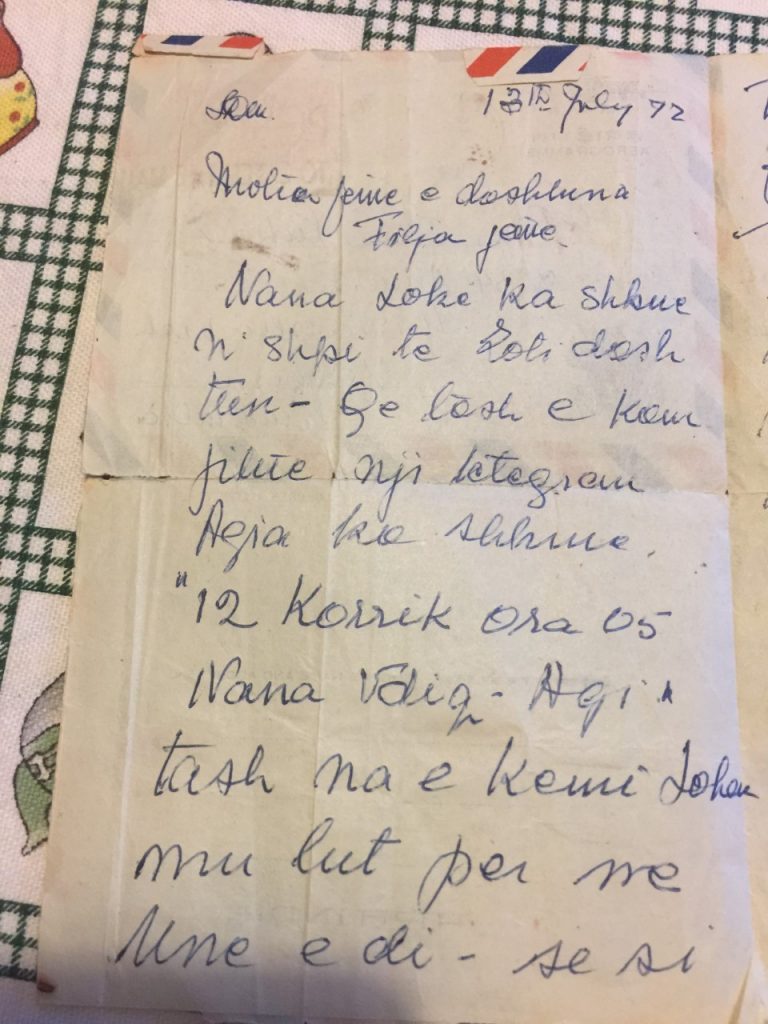 13th July 72
Motra jeme e dashtuna
Filja jeme.
Nana Loke ka shkue
n' shpi te Zoti dash
tun - Qe tash e kam
fillue nji letegram
Agia ka shkrue.
"12 Korrik ora 05
Nana Vdiq - Agi"
tash na e kemi Loken
mu lut per ne
Une e di - se si